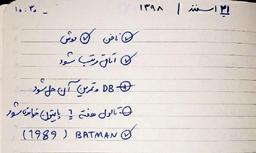 ۲۱ اسفند ۱۳۹۸ ۱۰:۳۰
ناخن دوش
اتاق مرتب شود
DB و تمرین آن حل شود
تا اول هفته پایتون خوانده شود
BATMAN (1989)